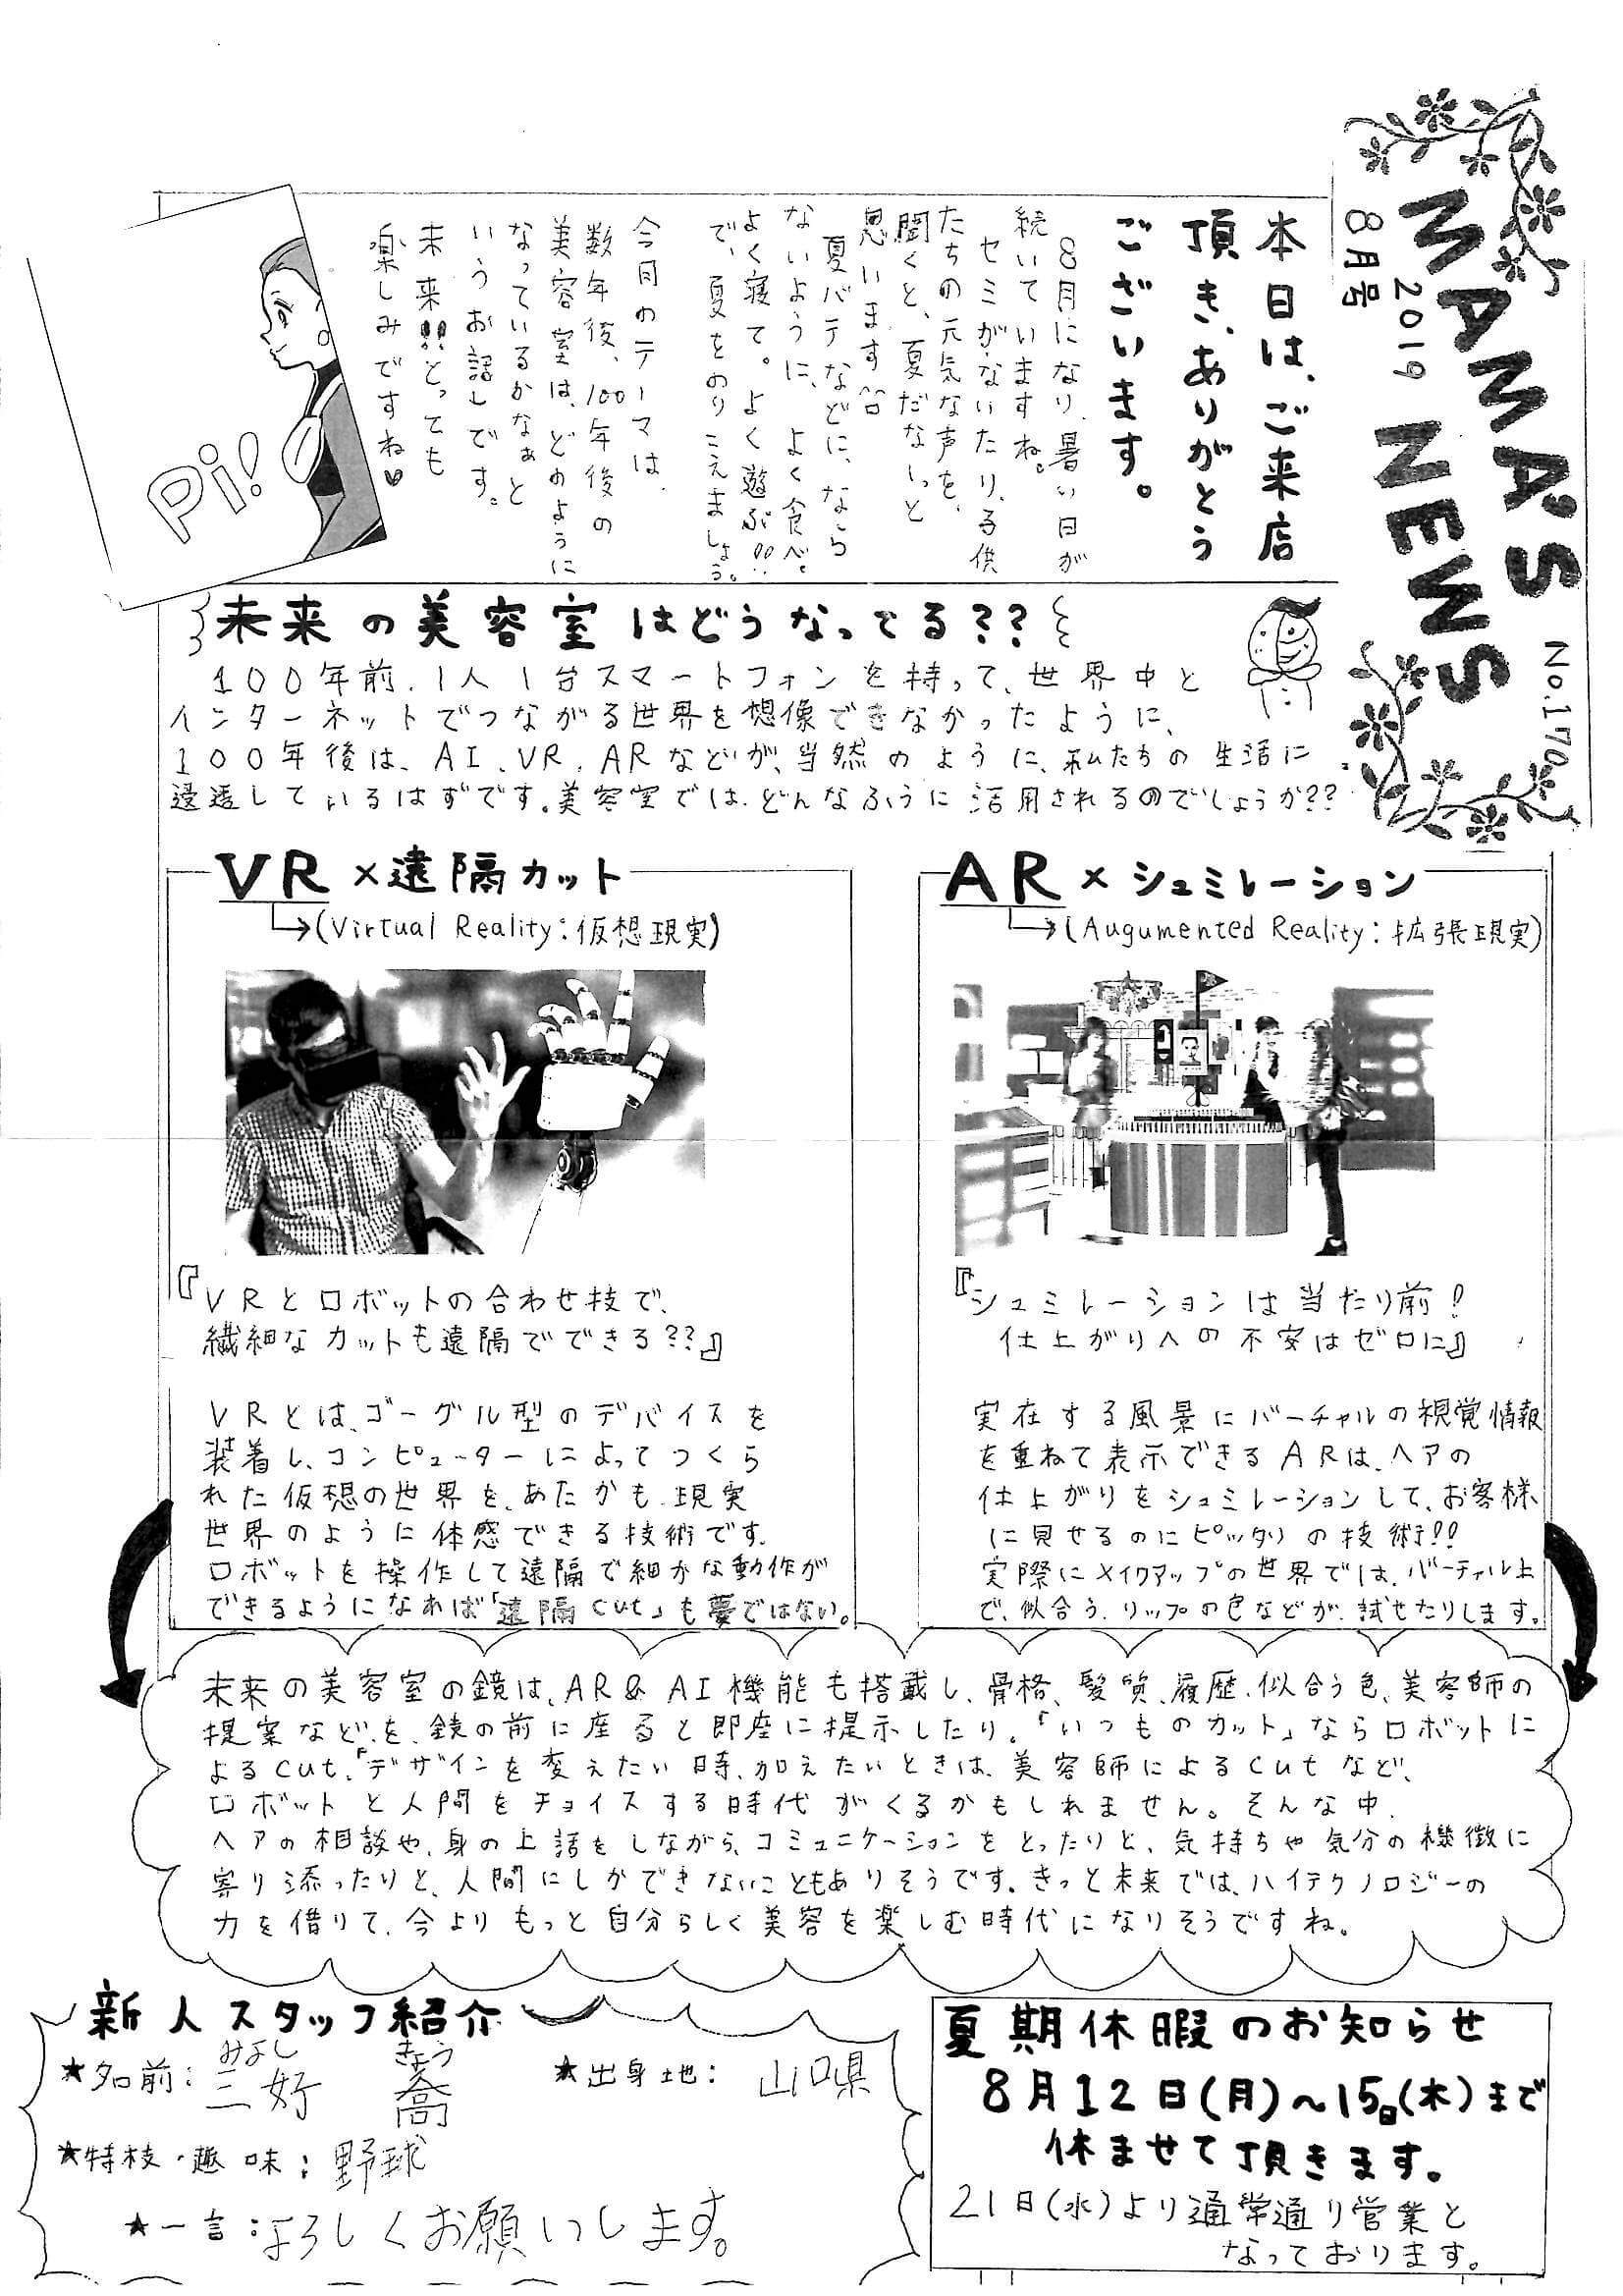 MAMA'S NEWS
2019
8月号
No.170
本日は、ご来店
頂き、ありがとう
ございます。
8月になり、暑い日が
続いていますね。
セミがないたり、子供
たちの元気な声を、
聞くと、夏だなぁっと
思います^^
夏バテなどに、なら
ないように、よく食べ。
よく寝て。よく遊ぶ!!
で、夏をのりこえましょう。
今月のテーマは、
数年後、100年後の
美容室は、どのように
なっているかなぁと
いうお話しです。
未来!!とっても
楽しみですね♥
Pi!
未来の美容室はどうなってる??
100年前、1人1台スマートフォンを持って、世界中と
インターネットでつながる世界を想像できなかったように、
100年後は、AI、VR、ARなどが、当然のように、私たちの生活に
浸透しているはずです。美容室では、どんなふうに活用されるのでしょうか??
VR×遠隔カット
→(Virtual Reality:仮想現実)
『VRとロボットの合わせ技で、
繊細なカットも遠隔でできる??』
VRとは、ゴーグル型のデバイスを
装着し、コンピューターによってつくら
れた仮想の世界を、あたかも現実
世界のように体感できる技術です。
ロボットを操作して遠隔で細かな動作が
できるようになれば「遠隔cut」も夢ではない。
AR×シュミレーション
→(Augumented Reality:拡張現実)
『シュミレーションは当たり前!
仕上がりへの不安はゼロに』
実在する風景にバーチャルの視覚情報
を重ねて表示できるARは、ヘアの
仕上がりをシュミレーションして、お客様
に見せるのにピッタリの技術!!
実際にメイクアップの世界では、バーチャル上
で、似合う、リップの色などが、試せたりします。
未来の美容室の鏡は、AR&AI機能も搭載し、骨格、髪質、履歴、似合う色、美容師の
提案などを、鏡の前に座ると即座に提示したり。「いつものカット」ならロボットに
よるcut、「デザインを変えたい時、加えたいときは、美容師によるcutなど、
ロボットと人間をチョイスする時代がくるかもしれません。そんな中、
ヘアの相談や、身の上話をしながら、コミュニケーションをとったりと、気持ちや気分の機微に
寄り添ったりと、人間にしかできないこともありそうです。きっと未来では、ハイテクノロジーの
力を借りて、今よりもっと自分らしく美容を楽しむ時代になりそうですね。
新人スタッフ紹介
みよし きょう
★名前:三好 喬 ★出身地:山口県
★特技・趣味:野球
★一言:よろしくお願いします。
夏期休暇のお知らせ
8月12日(月)〜15日(木)まで
休ませて頂きます。
21日(水)より通常通り営業と
なっております。